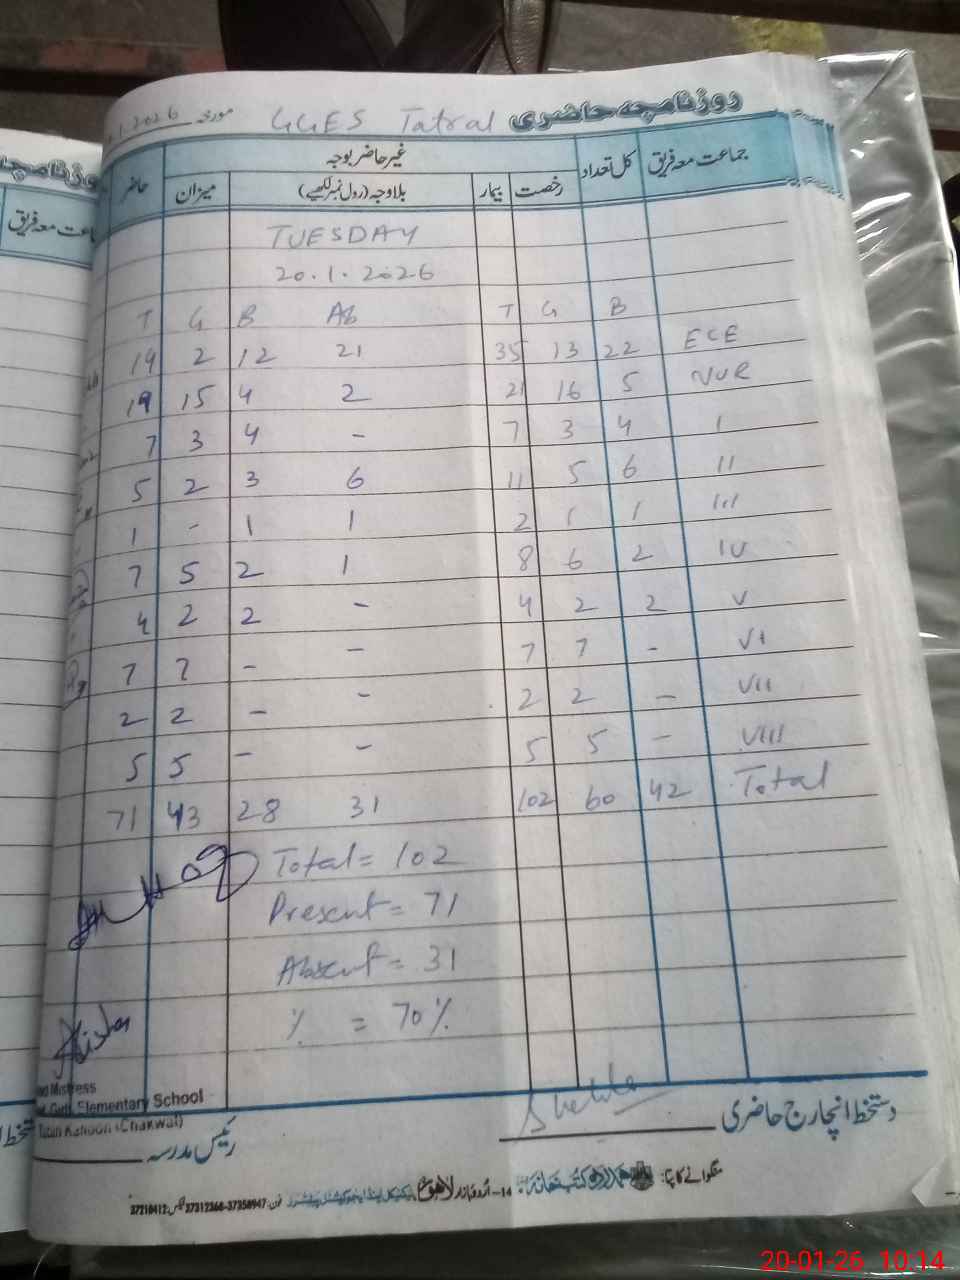 روزنامچہ حاضری GGES Tatral مورخہ .1.2026
جماعت معہ فریق کل تعداد غیر حاضر بوجہ حاضر
رخصت بیمار بلاوجہ (رول نمبر لکھیے) میزان
TUESDAY
20.1.2026
T G B Ab T G B
19 2 12 21 35 13 22 ECE
19 15 4 2 21 16 5 NUR
7 3 4 - 7 3 4 I
5 2 3 6 11 5 6 II
1 - 1 1 2 1 1 III
7 5 2 1 8 6 2 IV
4 2 2 - 4 2 2 V
7 7 - - 7 7 - VI
2 2 - - 2 2 - VII
5 5 - - 5 5 - VIII
71 43 28 31 102 60 42 Total
Total = 102
Present = 71
Absent = 31
% = 70%
Mistress
Elementary School
(Chakwal)
رئیس مدرسہ
دستخط انچارج حاضری
منگوانے کا پتہ: ہمدرد کتب خانہ 14- اردو بازار لاہور فون: 37358947-37312368 فیکس: 37210412
20-01-26 10:14